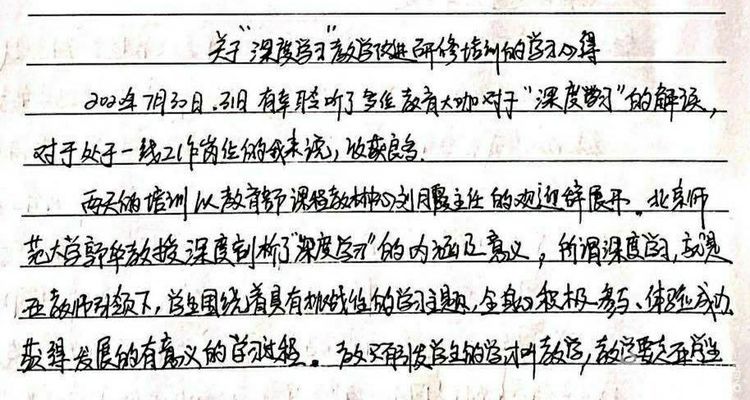 关于“深度学习”教学改进研修培训的学习心得
2020年7月30日、31日有幸聆听了多位教育大咖对于“深度学习”的解读，
对于处于一线工作岗位的我来说，收获良多。
两天的培训以教育部课程教材中心刘月霞主任的欢迎辞展开。北京师
范大学郭华教授深度剖析了“深度学习”的内涵及意义，所谓深度学习，就是
在教师引领下，学生围绕着具有挑战性的学习主题，全身心积极参与、体验成功、
获得发展的有意义的学习过程。教只有激发学生的学才叫教学，教学要走在学生